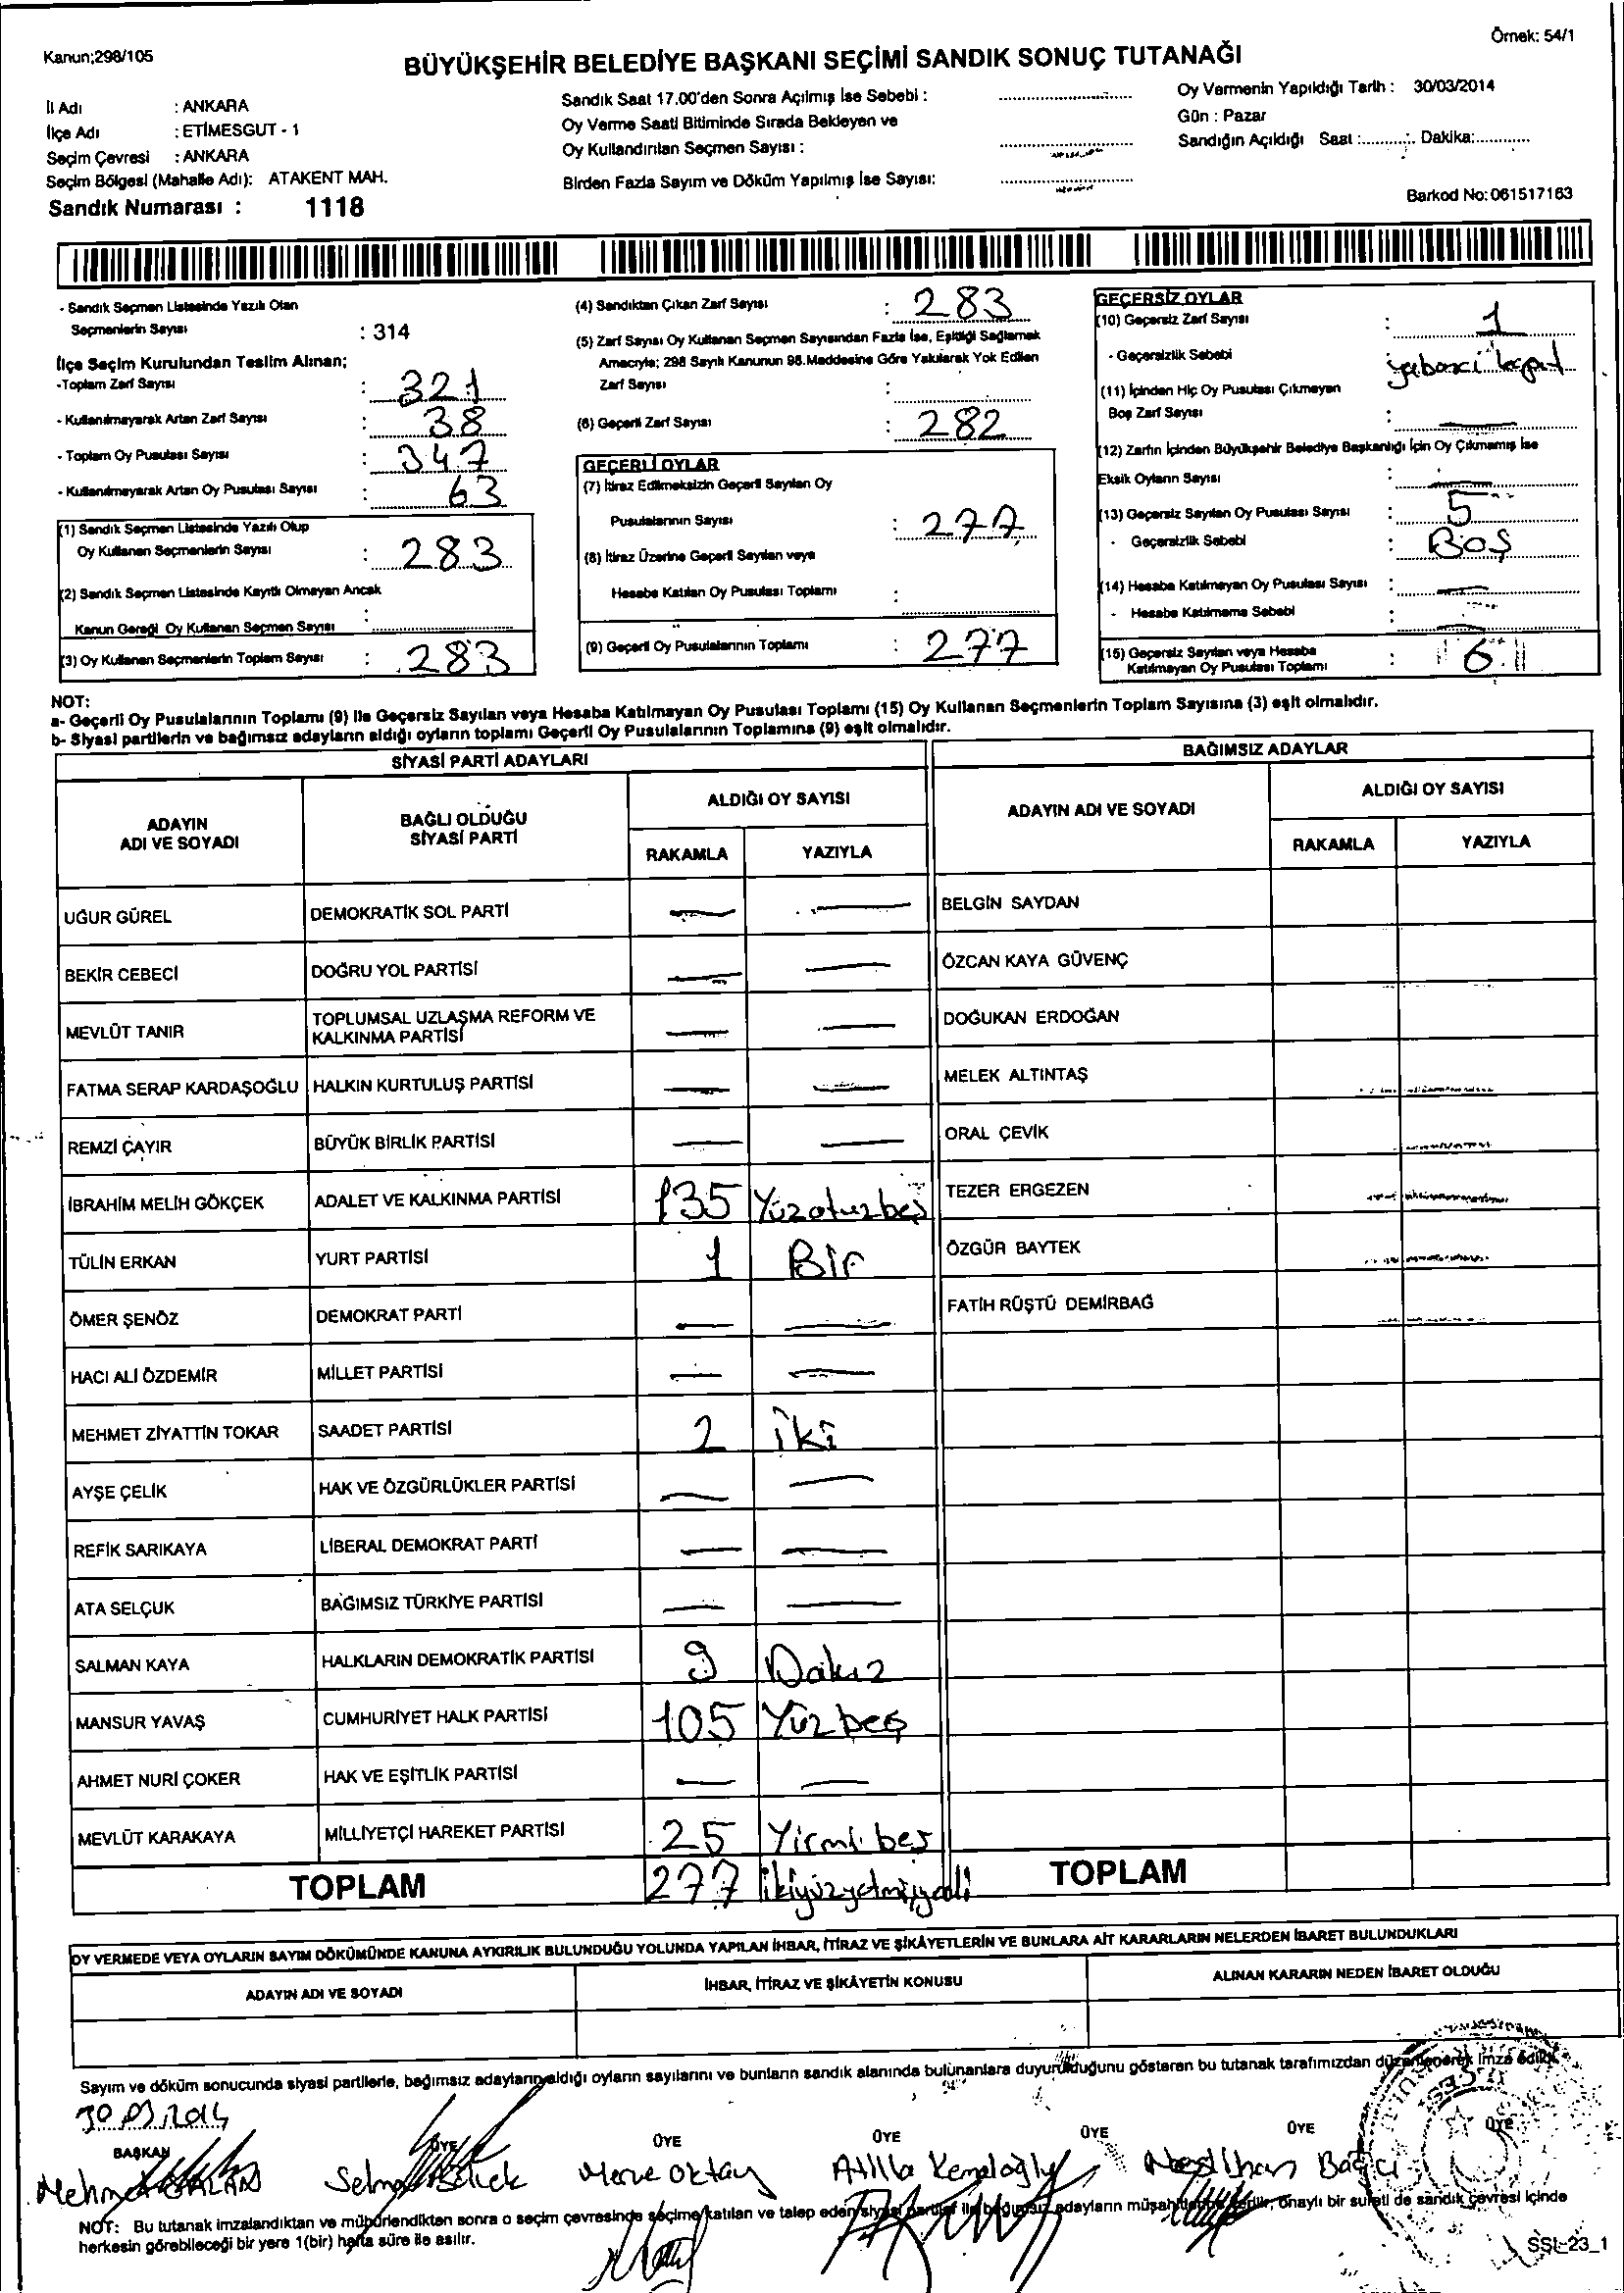 Kanun;298/105
Örnek: 54/1
BÜYÜKŞEHİR BELEDİYE BAŞKANI SEÇİMİ SANDIK SONUÇ TUTANAĞI
İl Adı : ANKARA
İlçe Adı : ETİMESGUT - 1
Seçim Çevresi : ANKARA
Seçim Bölgesi (Mahalle Adı): ATAKENT MAH.
Sandık Numarası : 1118
Sandık Saat 17.00'den Sonra Açılmış İse Sebebi :
Oy Verme Saati Bitiminde Sırada Bekleyen ve
Oy Kullandırılan Seçmen Sayısı :
Birden Fazla Sayım ve Döküm Yapılmış İse Sayısı:
Oy Vermenin Yapıldığı Tarih : 30/03/2014
Gün : Pazar
Sandığın Açıldığı Saat :........... Dakika:............
Barkod No:061517163
- Sandık Seçmen Listesinde Yazılı Olan
Seçmenlerin Sayısı : 314
İlçe Seçim Kurulundan Teslim Alınan;
-Toplam Zarf Sayısı : 321
- Kullanılmayarak Artan Zarf Sayısı : 38
- Toplam Oy Pusulası Sayısı : 347
- Kullanılmayarak Artan Oy Pusulası Sayısı : 63
(1) Sandık Seçmen Listesinde Yazılı Olup
Oy Kullanan Seçmenlerin Sayısı : 283
(2) Sandık Seçmen Listesinde Kayıtlı Olmayan Ancak
Kanun Gereği Oy Kullanan Seçmen Sayısı :
(3) Oy Kullanan Seçmenlerin Toplam Sayısı : 283
(4) Sandıktan Çıkan Zarf Sayısı : 283
(5) Zarf Sayısı Oy Kullanan Seçmen Sayısından Fazla İse, Eşitliği Sağlamak
Amacıyla; 298 Sayılı Kanunun 98.Maddesine Göre Yakılarak Yok Edilen
Zarf Sayısı :
(6) Geçerli Zarf Sayısı : 282
GEÇERLİ OYLAR
(7) İtiraz Edilmeksizin Geçerli Sayılan Oy
Pusulalarının Sayısı : 277
(8) İtiraz Üzerine Geçerli Sayılan veya
Hesaba Katılan Oy Pusulası Toplamı :
(9) Geçerli Oy Pusulalarının Toplamı : 277
GEÇERSİZ OYLAR
(10) Geçersiz Zarf Sayısı : 1
- Geçersizlik Sebebi
(11) İçinden Hiç Oy Pusulası Çıkmayan
Boş Zarf Sayısı : —
(12) Zarfın İçinden Büyükşehir Belediye Başkanlığı İçin Oy Çıkmamış İse
Eksik Oyların Sayısı : —
(13) Geçersiz Sayılan Oy Pusulası Sayısı : 5
- Geçersizlik Sebebi : Boş
(14) Hesaba Katılmayan Oy Pusulası Sayısı : —
- Hesaba Katılmama Sebebi : —
(15) Geçersiz Sayılan veya Hesaba
Katılmayan Oy Pusulası Toplamı : 6
NOT:
a- Geçerli Oy Pusulalarının Toplamı (9) ile Geçersiz Sayılan veya Hesaba Katılmayan Oy Pusulası Toplamı (15) Oy Kullanan Seçmenlerin Toplam Sayısına (3) eşit olmalıdır.
b- Siyasi partilerin ve bağımsız adayların aldığı oyların toplamı Geçerli Oy Pusulalarının Toplamına (9) eşit olmalıdır.
SİYASİ PARTİ ADAYLARI
BAĞIMSIZ ADAYLAR
ADAYIN ADI VE SOYADI
BAĞLI OLDUĞU SİYASİ PARTİ
ALDIĞI OY SAYISI
RAKAMLA YAZIYLA
ADAYIN ADI VE SOYADI
ALDIĞI OY SAYISI
RAKAMLA YAZIYLA
UĞUR GÜREL DEMOKRATİK SOL PARTİ — — BELGİN SAYDAN
BEKİR CEBECİ DOĞRU YOL PARTİSİ — — ÖZCAN KAYA GÜVENÇ
MEVLÜT TANIR TOPLUMSAL UZLAŞMA REFORM VE KALKINMA PARTİSİ — — DOĞUKAN ERDOĞAN
FATMA SERAP KARDAŞOĞLU HALKIN KURTULUŞ PARTİSİ — — MELEK ALTINTAŞ
REMZİ ÇAYIR BÜYÜK BİRLİK PARTİSİ — — ORAL ÇEVİK
İBRAHİM MELİH GÖKÇEK ADALET VE KALKINMA PARTİSİ 135 Yüzotuzbeş TEZER ERGEZEN
TÜLİN ERKAN YURT PARTİSİ 1 Bir ÖZGÜR BAYTEK
ÖMER ŞENÖZ DEMOKRAT PARTİ — — FATİH RÜŞTÜ DEMİRBAĞ
HACI ALİ ÖZDEMİR MİLLET PARTİSİ — —
MEHMET ZİYATTİN TOKAR SAADET PARTİSİ 2 iki
AYŞE ÇELİK HAK VE ÖZGÜRLÜKLER PARTİSİ — —
REFİK SARIKAYA LİBERAL DEMOKRAT PARTİ — —
ATA SELÇUK BAĞIMSIZ TÜRKİYE PARTİSİ — —
SALMAN KAYA HALKLARIN DEMOKRATİK PARTİSİ 9 Dokuz
MANSUR YAVAŞ CUMHURİYET HALK PARTİSİ 105 Yüzbeş
AHMET NURİ ÇOKER HAK VE EŞİTLİK PARTİSİ — —
MEVLÜT KARAKAYA MİLLİYETÇİ HAREKET PARTİSİ 25 Yirmi beş
TOPLAM 277 ikiyüzyetmişyedi TOPLAM
OY VERMEDE VEYA OYLARIN SAYIM DÖKÜMÜNDE KANUNA AYKIRILIK BULUNDUĞU YOLUNDA YAPILAN İHBAR, İTİRAZ VE ŞİKÂYETLERİN VE BUNLARA AİT KARARLARIN NELERDEN İBARET BULUNDUKLARI
ADAYIN ADI VE SOYADI İHBAR, İTİRAZ VE ŞİKÂYETİN KONUSU ALINAN KARARIN NEDEN İBARET OLDUĞU
Sayım ve döküm sonucunda siyasi partilerle, bağımsız adayların aldığı oyların sayılarını ve bunların sandık alanında bulunanlara duyurulduğunu gösteren bu tutanak tarafımızdan düzenlenerek imza edildi.
30.03.2014
BAŞKAN ÜYE ÜYE ÜYE ÜYE ÜYE ÜYE
Merve Oktay Atilla Kemaloğlu Neslihan Bağcı
NOT: Bu tutanak imzalandıktan ve mühürlendikten sonra o seçim çevresinde seçime katılan ve talep eden siyasi partiler ile bağımsız adayların müşahitlerine verilir, onaylı bir sureti de sandık çevresi içinde
herkesin görebileceği bir yere 1(bir) hafta süre ile asılır.
SSL_23_1